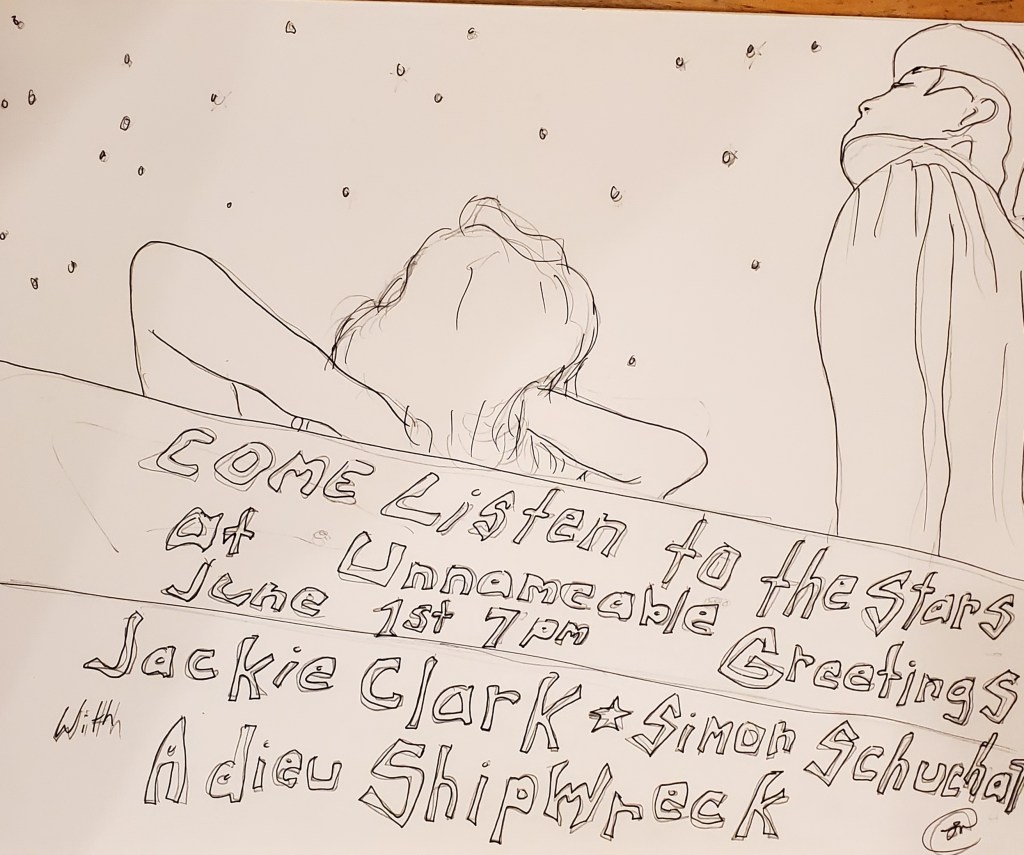 COME Listen to the Stars
at Unnameable Greetings
June 1st 7pm
Jackie Clark ☆ Simon Schuchat
With
Adieu Shipwreck